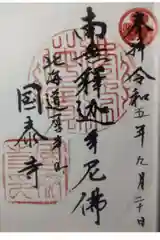 奉拝 令和五年九月二十日
南無釋迦牟尼佛
北海道厚岸
国泰寺